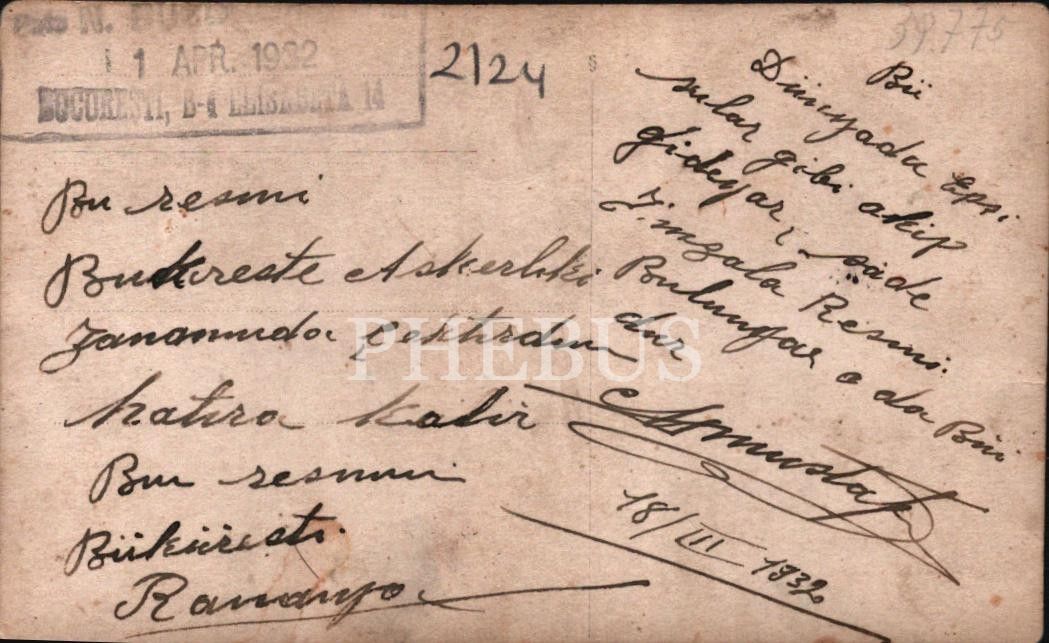 N. BUZD
1 APR. 1932
BUCUREȘTI, B-d ELISABETA 14
2124
39775
Bu resmi
Bukreste Askerlıki
zanamnda çektırdım
hatıra kalır
Bu resmın
Büküresti.
Romanya
Bü
Dünyada epsi
sular gibi akip
gideyar, sade
İmzala Resmi.
Bulunyar o da Bir
dur
Mustafa
18/III 1932
PHEBUS